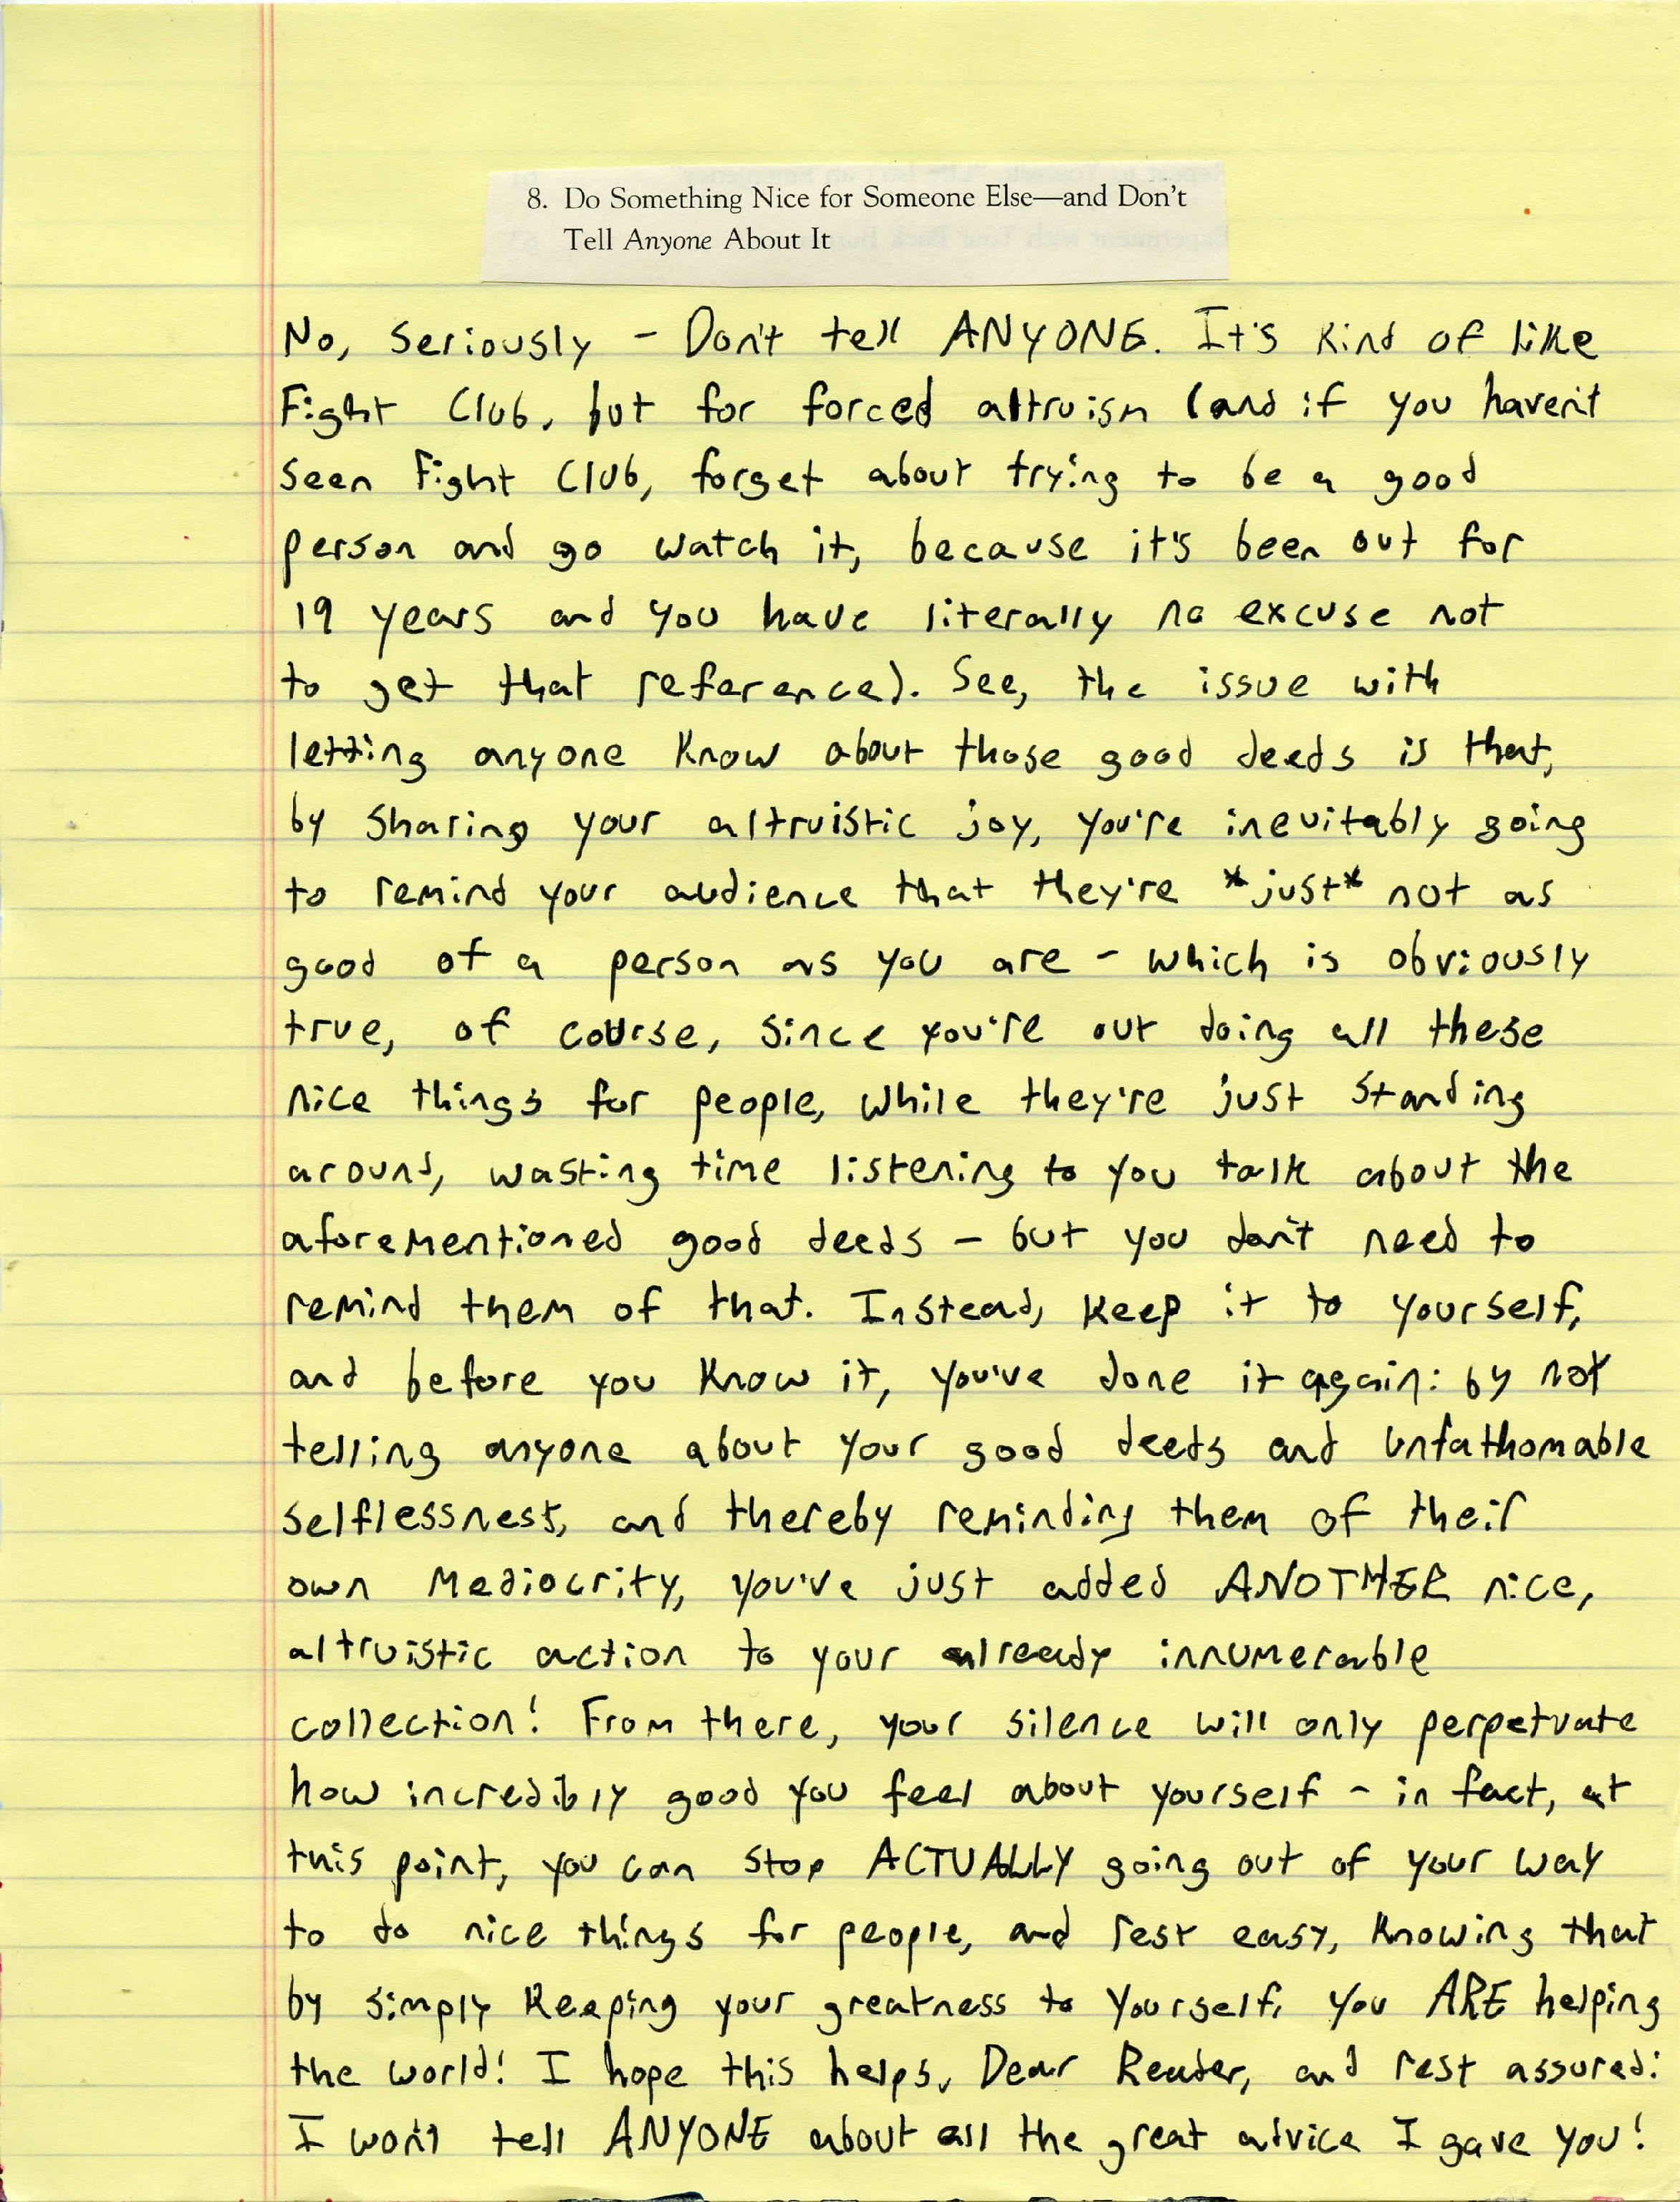 8. Do Something Nice for Someone Else—and Don't
Tell Anyone About It
No, seriously - Don't tell ANYONE. It's kind of like
Fight Club, but for forced altruism (and if you haven't
seen Fight Club, forget about trying to be a good
person and go watch it, because it's been out for
19 years and you have literally no excuse not
to get that reference). See, the issue with
letting anyone know about those good deeds is that,
by sharing your altruistic joy, you're inevitably going
to remind your audience that they're *just* not as
good of a person as you are - which is obviously
true, of course, since you're out doing all these
nice things for people, while they're just standing
around, wasting time listening to you talk about the
aforementioned good deeds - but you don't need to
remind them of that. Instead, keep it to yourself,
and before you know it, you've done it again: by not
telling anyone about your good deeds and unfathomable
selflessness, and thereby reminding them of their
own mediocrity, you've just added ANOTHER nice,
altruistic action to your already innumerable
collection! From there, your silence will only perpetuate
how incredibly good you feel about yourself - in fact, at
this point, you can stop ACTUALLY going out of your way
to do nice things for people, and rest easy, knowing that
by simply keeping your greatness to yourself, you ARE helping
the world! I hope this helps, Dear Reader, and rest assured:
I won't tell ANYONE about all the great advice I gave you!